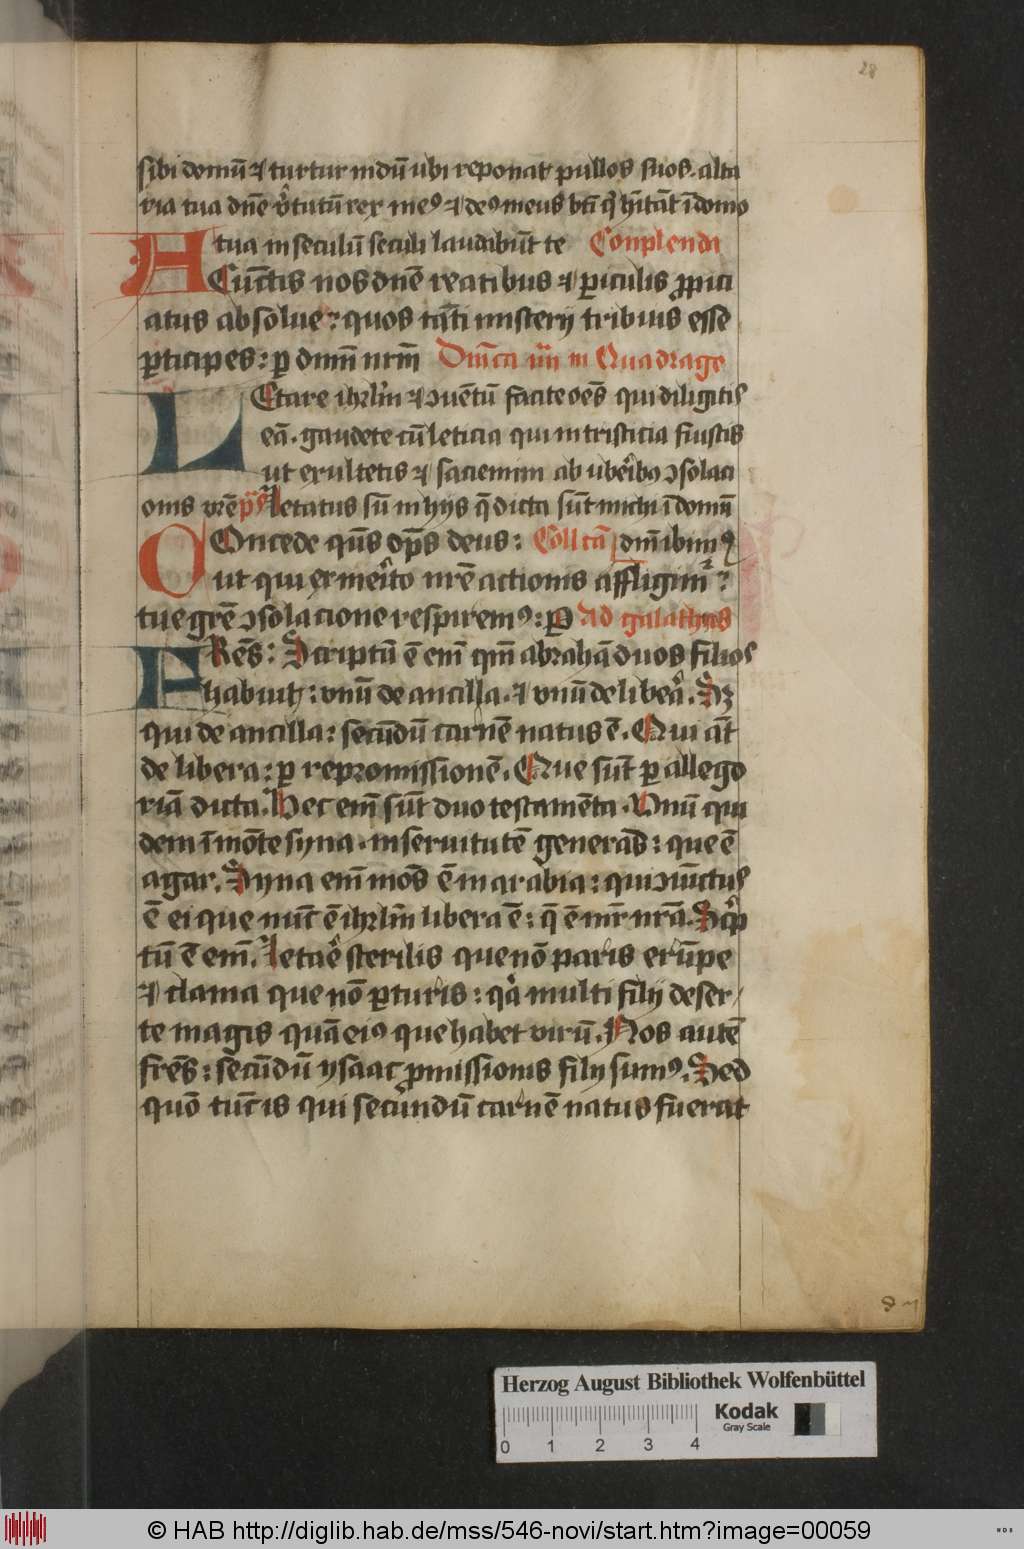 28
sibi domū ⁊ turtur nidū ubi reponat pullos suos . alta
ria tua dn̄e v̓tutū rex me9 ⁊ de9 meus bt̄i q̓ hītāt ī domo
tua in seculū seculi laudabūt te Conplenda
A Cūctis nos dn̄e reatibus ⁊ ꝑiculis ꝓpici
atus absolue : quos tāti misterij tribuis esse
ꝑticipes : ꝑ dnm̄ nrm̄ Dnīca iiii in Quadrage
LEtare ihrlm̄ ⁊ ꝯuētū facite oēs qui diligitis
eā . gaudete cū leticia qui in tristicia fuistis
ut exultetis ⁊ saciemini ab ube̓ibꝫ ꝯsolaci
onis vr̄e p̄s Letatus sū in hijs q̄ dicta sūt michi ī domū
COncede qs̄ op̄s deus : Collcā dnī ibim9
ut qui ex me̓ito nr̄e actionis affligim̓ :
tue gr̄e ꝯsolacione respirem9 : ꝑ Ad galathas
FRēs : Scriptū ē em̄ qm̄ abrahā duos filios
habuit : vnū de ancilla . ⁊ vnū de libe̓a . Sꝫ
qui de ancilla : secūdū carnē natus ē . Qui āt
de libera : ꝑ repromissionē . Que sūt ꝑ allego
riā dicta . Hec em̄ sūt duo testamēta . Vnū qui
dem ī mōte syna . in seruitutē generās : que ē
agar . Syna em̄ mōs ē in arabia : qui ꝯiūctus
ē ei que nūc ē ihrlm̄ libera ē : q̄ ē mr̄ nr̄a . Scͥp
tū ē em̄ . Letare̓ sterilis que nō paris erūpe
⁊ clama que nō ꝑturis : qͣ multi filij deser
te magis quā ei9 que habet virū . Nos autē
frēs : secūdū ysaac ꝓmissionis filij sum9 . Sed
quō tūc is qui secundū carnē natus fuerat
Herzog August Bibliothek Wolfenbüttel
0 1 2 3 4
Kodak
Gray Scale
© HAB http://diglib.hab.de/mss/546-novi/start.htm?image=00059